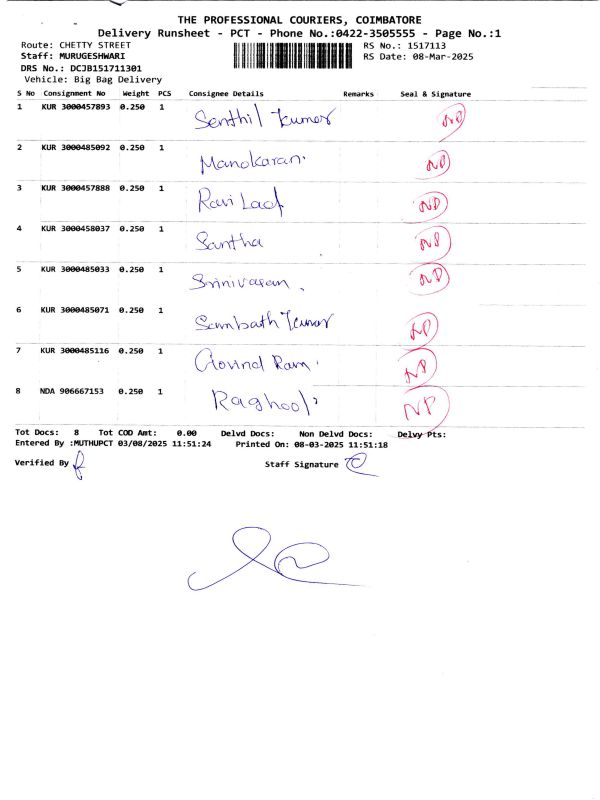 THE PROFESSIONAL COURIERS, COIMBATORE
Delivery Runsheet - PCT - Phone No.:0422-3505555 - Page No.:1
Route: CHETTY STREET RS No.: 1517113
Staff: MURUGESHWARI RS Date: 08-Mar-2025
DRS No.: DCJB151711301
Vehicle: Big Bag Delivery
S No Consignment No Weight PCS Consignee Details Remarks Seal & Signature
1 KUR 3000457893 0.250 1 Senthil Kumar ND
2 KUR 3000485092 0.250 1 Manokaran. ND
3 KUR 3000457888 0.250 1 Ravi Lad ND
4 KUR 3000458037 0.250 1 Santha ND
5 KUR 3000485033 0.250 1 Srinivasan. ND
6 KUR 3000485071 0.250 1 Sambath Kumar ND
7 KUR 3000485116 0.250 1 Govind Ram. ND
8 NDA 906667153 0.250 1 Raghool NP
Tot Docs: 8 Tot COD Amt: 0.00 Delvd Docs: Non Delvd Docs: Delvy Pts:
Entered By :MUTHUPCT 03/08/2025 11:51:24 Printed On: 08-03-2025 11:51:18
Verified By Staff Signature